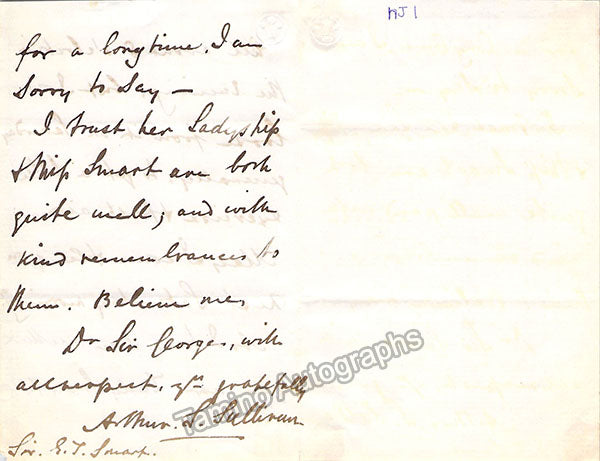 NJ 1
for a long time, I am
Sorry to Say —
I trust her Ladyship
& Miss Smart are both
quite well; and with
kind remembrances to
them. Believe me,
Dr Sir George, with
all respect, yrs gratefully
Arthur. S. Sullivan
Sir. G. T. Smart.
Tamino Autographs